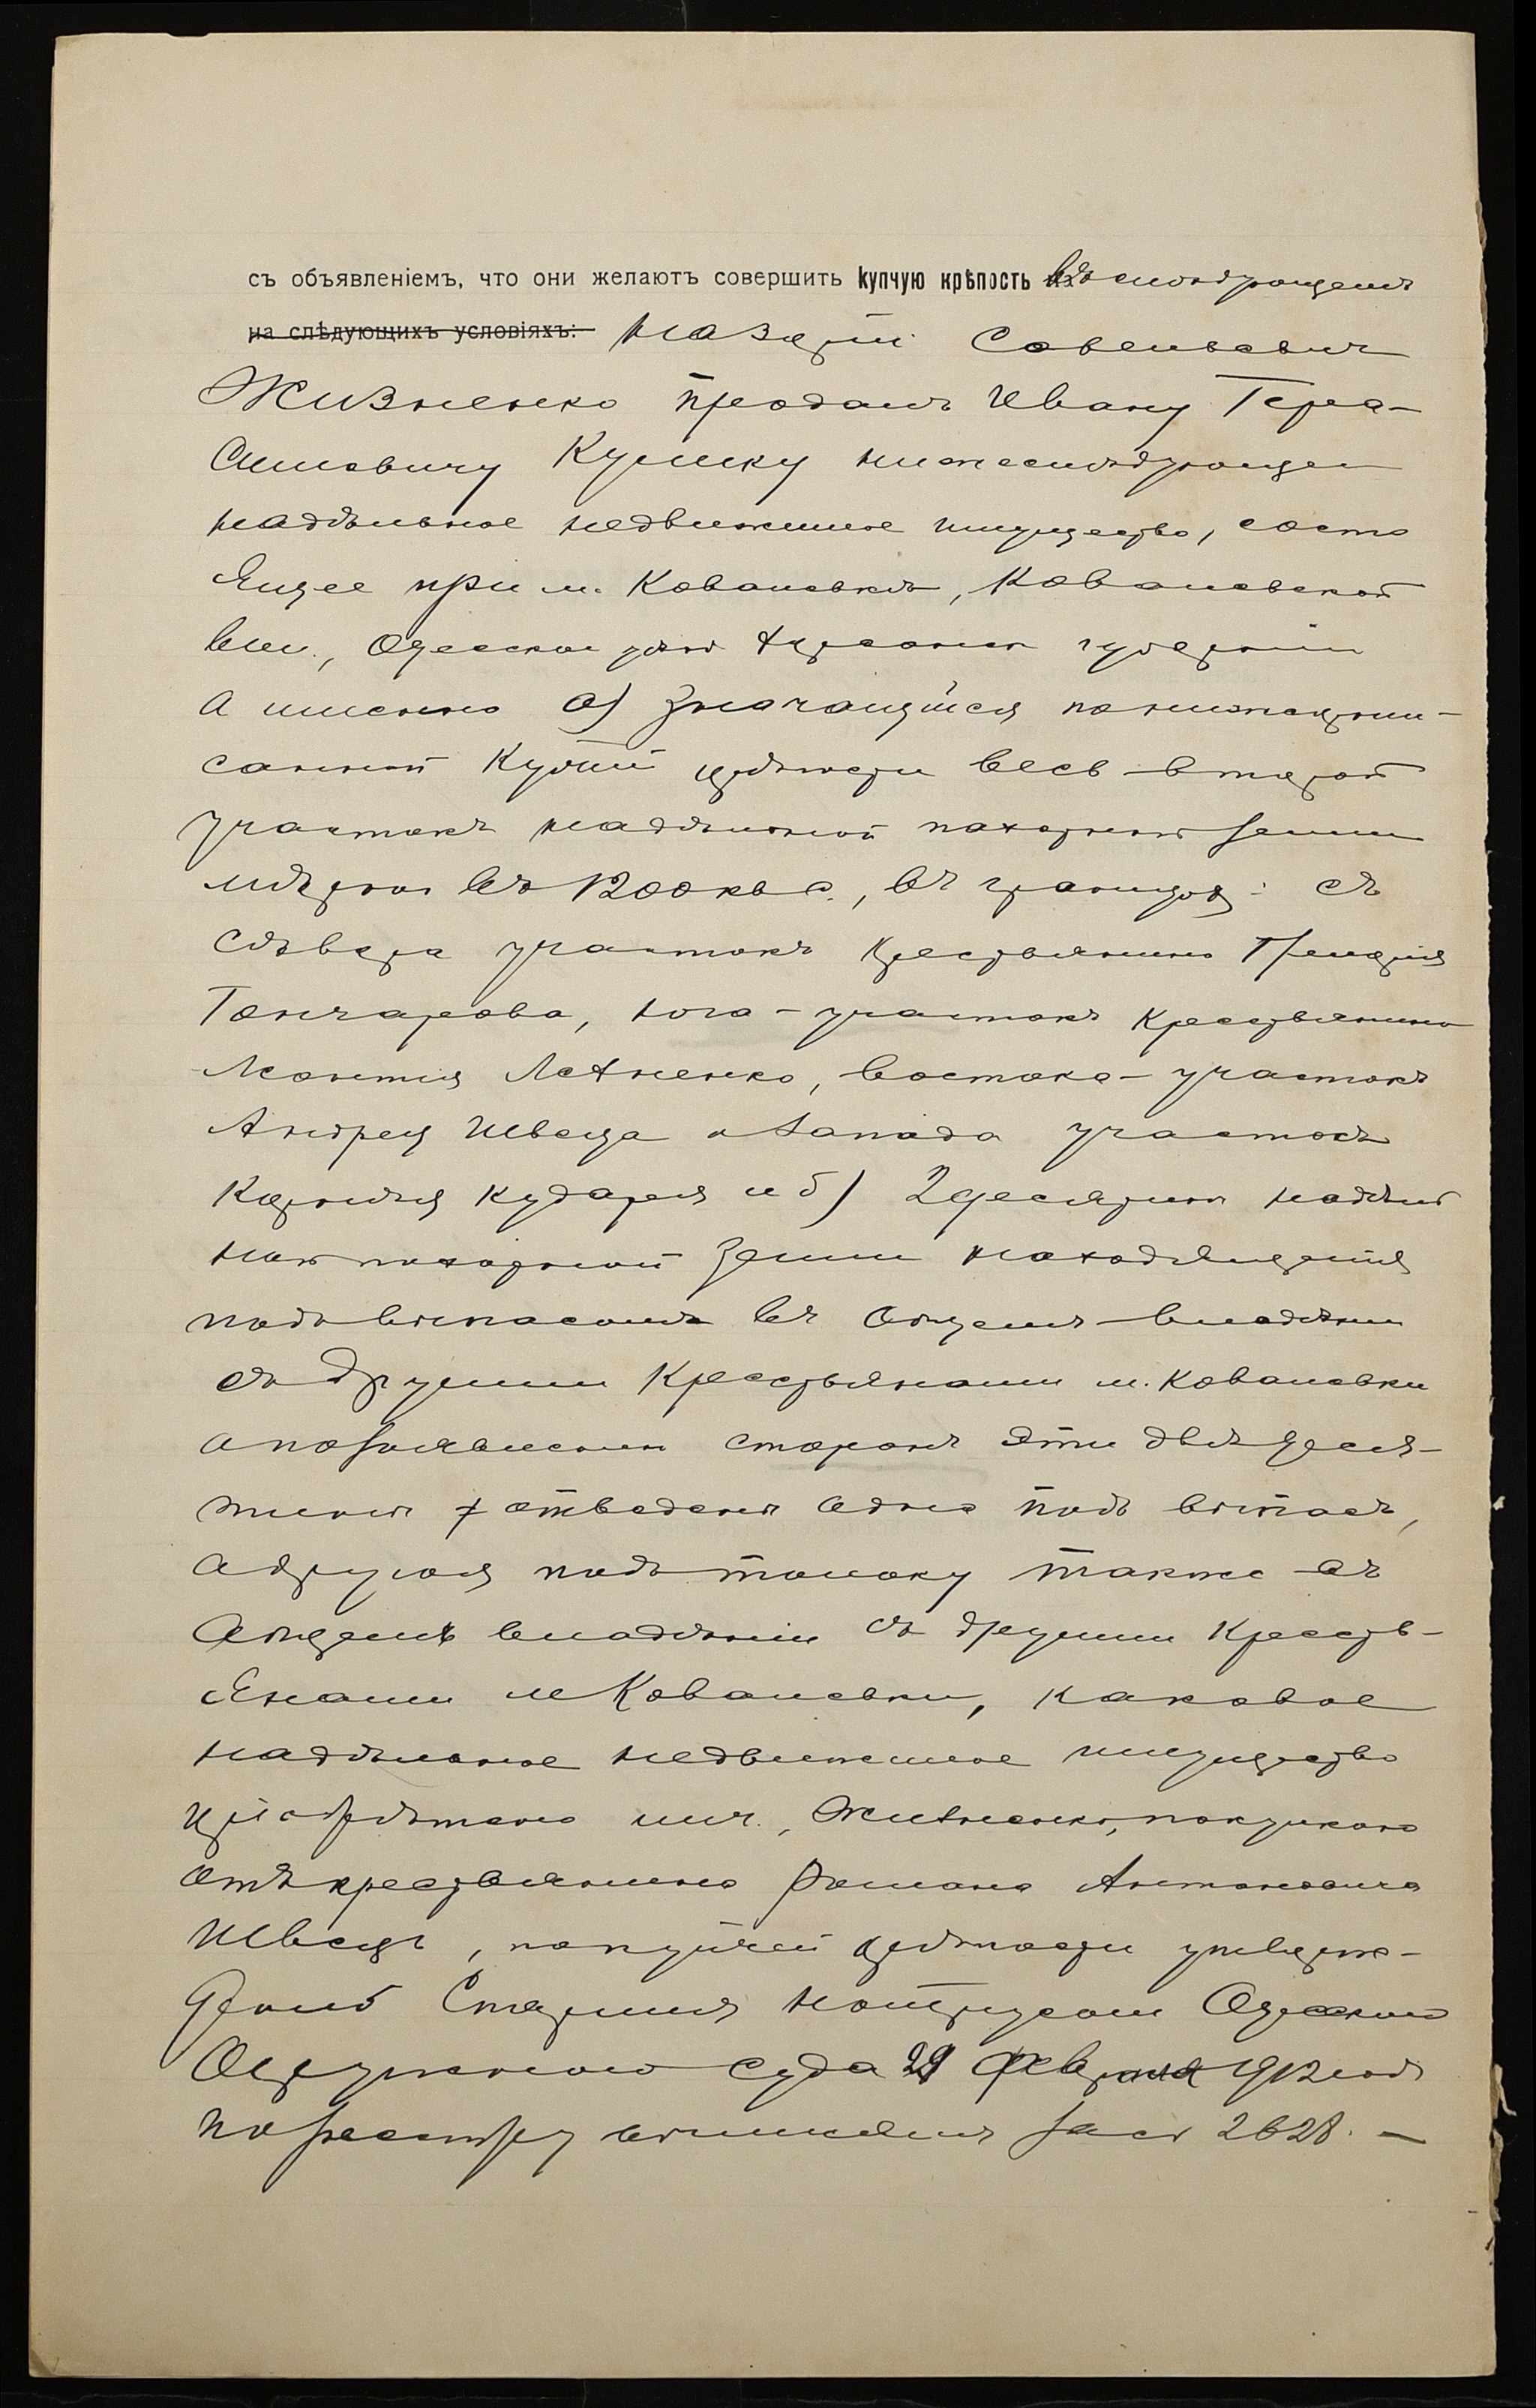 съ объявленіемъ, что они желаютъ совершить купчую крѣпость въ слѣдующемъ
на слѣдующихъ условіяхъ: Назарій Савельевич
Жизненко продалъ Ивану Гера-
симовичу Кулику нижеслѣдующее
надѣльное недвижимое имущество, состо
ящее при м. Ковалевкѣ, Ковалевской
вол., Одесскаго уѣзда Херсонской губерніи
а именно а) значащійся по нижепрописанной
купчей крѣпости весь второй
участокъ надѣльной пахотной земли
мѣрою въ 1200 кв с., въ границахъ: съ
сѣвера участокъ крестьянина
Гончарова, юга - участокъ крестьянина
Леонтія Лехненко, востока - участокъ
Андрея Швеца и запада участокъ
Корнѣя Кударя и б) 2 десятины надѣль
ной пахотной земли находящейся
подъ выпасомъ въ общемъ владѣніи
съ другими крестьянами м. Ковалевки
а по заявленію сторонъ эти двѣ деся-
тины отведены одна подъ выпасъ,
а другая подъ толоку также въ
общемъ владѣніи съ другими кресть-
янами м Ковалевки, каковое
надѣльное недвижимое имущество
пріобрѣтено имъ, Жизненко, покупкою
отъ крестьянина Романа Антоновича
Швецъ, по купчей крѣпости утверж-
денной Старшимъ Нотаріусомъ Одесскаго
Окружнаго суда 29 Февраля 1912 года
по реестру за № 2628. —